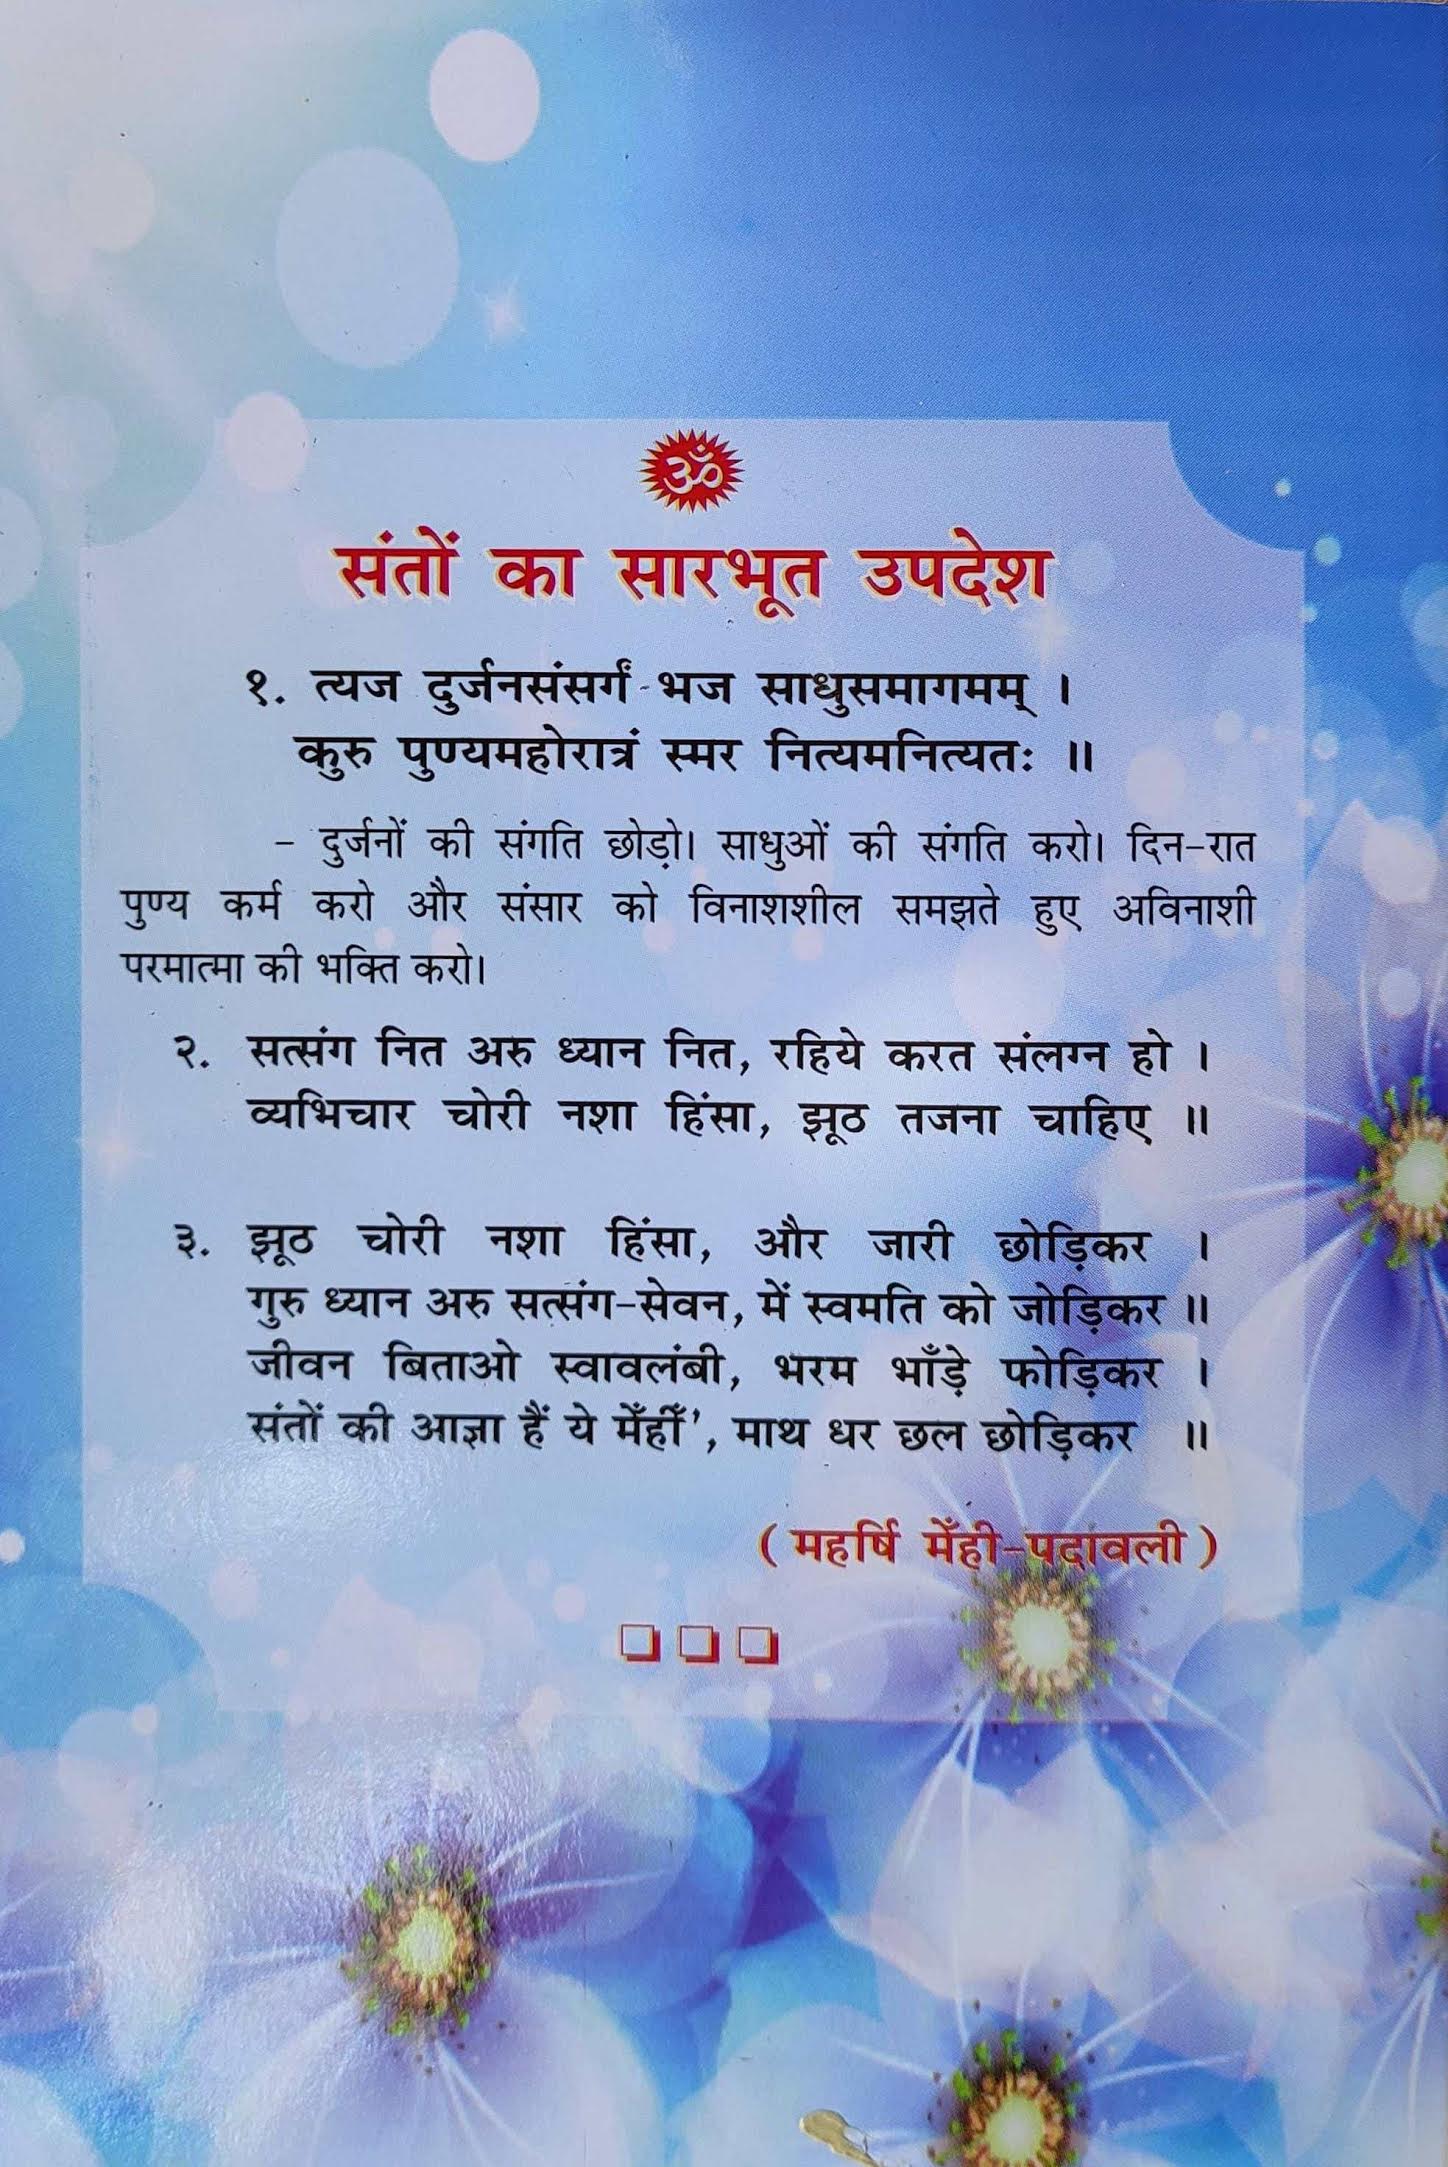 ॐ
संतों का सारभूत उपदेश
१. त्यज दुर्जनसंसर्गं भज साधुसमागमम् ।
कुरु पुण्यमहोरात्रं स्मर नित्यमनित्यतः ॥
- दुर्जनों की संगति छोड़ो। साधुओं की संगति करो। दिन-रात
पुण्य कर्म करो और संसार को विनाशशील समझते हुए अविनाशी
परमात्मा की भक्ति करो।
२. सत्संग नित अरु ध्यान नित, रहिये करत संलग्न हो ।
व्यभिचार चोरी नशा हिंसा, झूठ तजना चाहिए ॥
३. झूठ चोरी नशा हिंसा, और जारी छोड़िकर ।
गुरु ध्यान अरु सत्संग-सेवन, में स्वमति को जोड़िकर ॥
जीवन बिताओ स्वावलंबी, भरम भाँड़े फोड़िकर ।
संतों की आज्ञा हैं ये मेँहीँ', माथ धर छल छोड़िकर ॥
( महर्षि मेँही-पदावली )